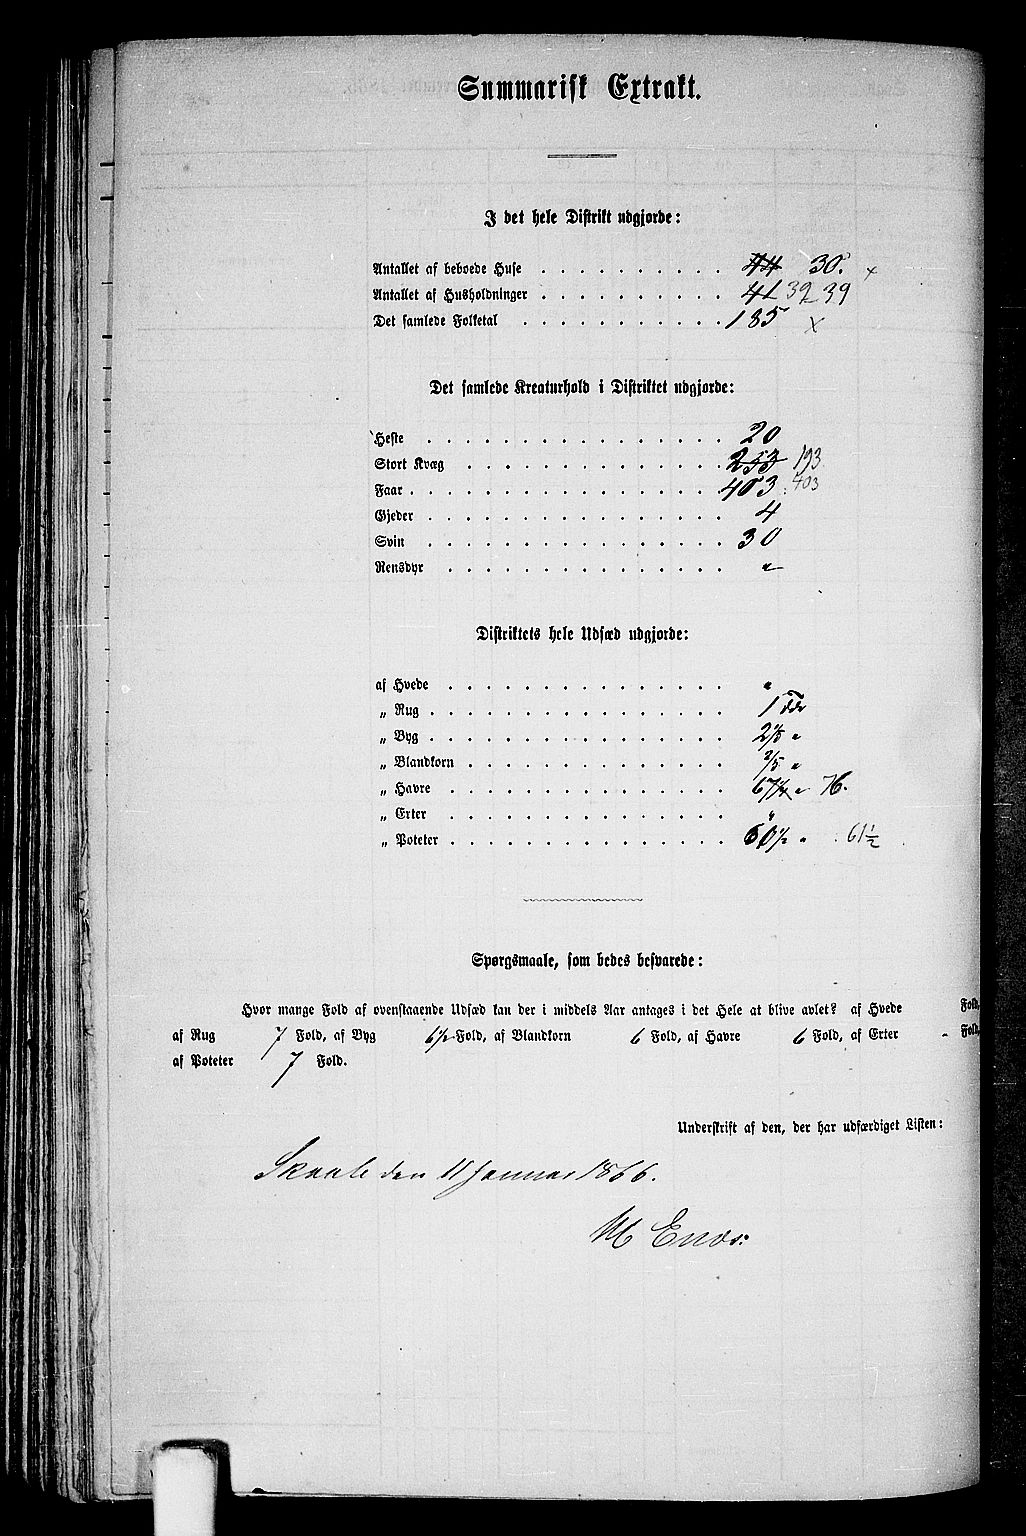 Summarisk Extrakt.
I det hele Distrikt udgjorde:
Antallet af beboede Huse 44 30. x
Antallet af Husholdninger 41 39 39
Det samlede Folketal 185 x
Det samlede Kreaturhold i Distriktet udgjorde:
Heste 20
Stort Kvæg 253 193
Faar 403 403
Gjeder 4
Svin 30
Rensdyr "
Distriktets hele Udsæd udgjorde:
af Hvede "
„ Rug 1 Tdr
„ Byg "
„ Blandkorn "
„ Havre 67 1/4 " 76.
„ Erter "
„ Poteter 60 1/2 " 61 1/2
Spørgsmaale, som bedes besvarede:
Hvor mange Fold af ovenstaaende Udsæd kan der i middels Aar antages i det Hele at blive avlet? af Hvede Fold,
af Rug 7 Fold, af Byg 6 1/2 Fold, af Blandkorn 6 Fold, af Havre 6 Fold, af Erter - Fold,
af Poteter 7 Fold.
Underskrift af den, der har udfærdiget Listen:
den 11 Januar 1866.